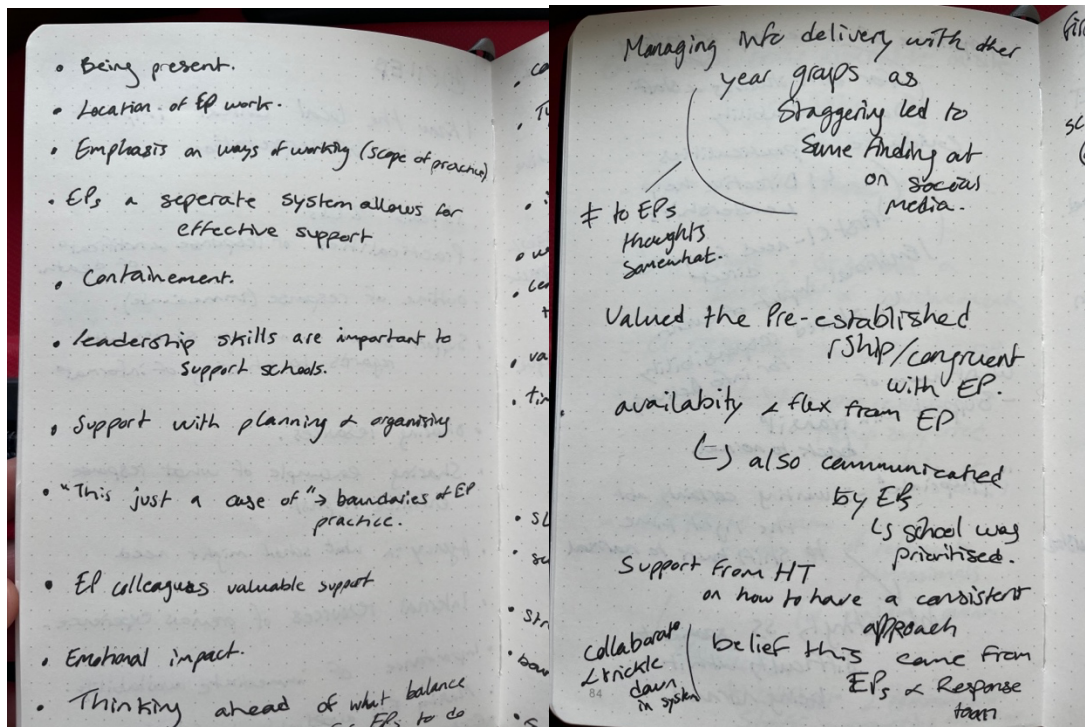 • Being present.
• Location of EP work.
• Emphasis on ways of working (scope of practice)
• EPs a seperate system allows for
effective support
• Containement.
• leadership skills are important to
support schools.
• Support with planning & organising
• "This just a case of" → boundaries of EP
practice.
• EP colleagues valuable support
• Emotional impact.
• Thinking ahead of what balance
EPs to do
Managing info delivery with other
year groups as
Staggering led to
Some finding out
on social
media.
≠ to EPs
thoughts
somewhat.
Valued the Pre-established
rship/congruent
with EP.
availabity & flex from EP
↳ also communicated
by EPs
↳ school was
prioritised.
Support from HT
on how to have a consistent
approach
Collaborate
& trickle
down
in system
belief this came from
EPs & Response
team
84